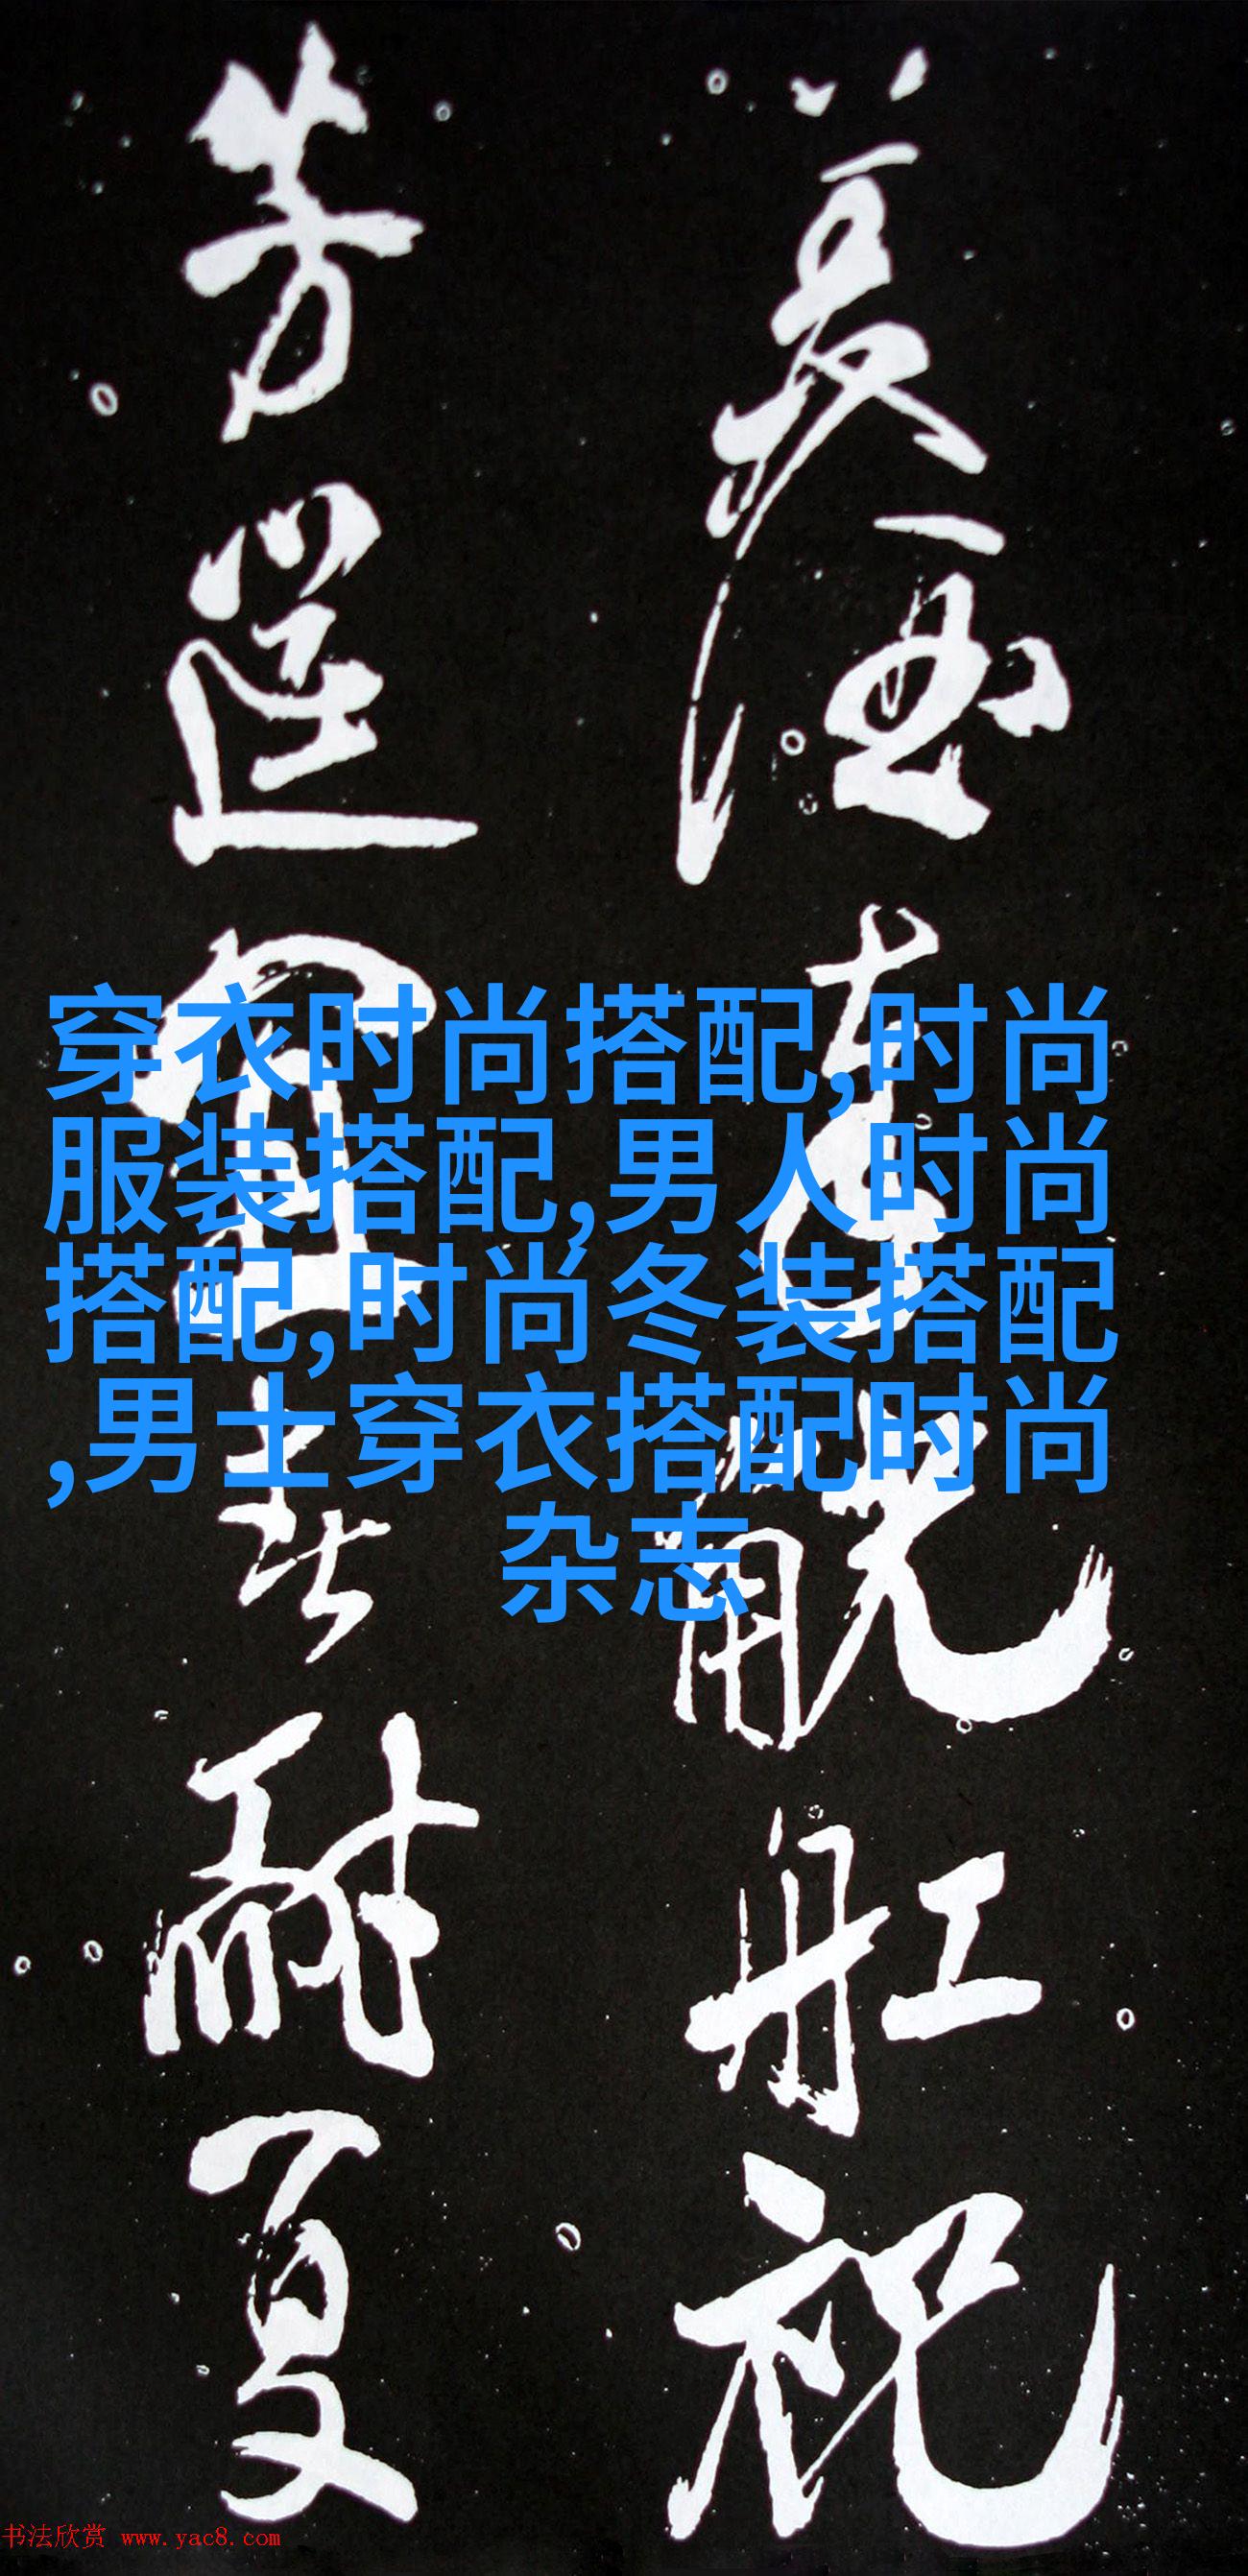 穿衣时尚搭配,时尚
服装搭配,男人时尚
搭配,时尚冬装搭配
,男士穿衣搭配时尚
杂志
觥舡祝
芳筵宜此耐夏
书法欣赏 www.yac8.com